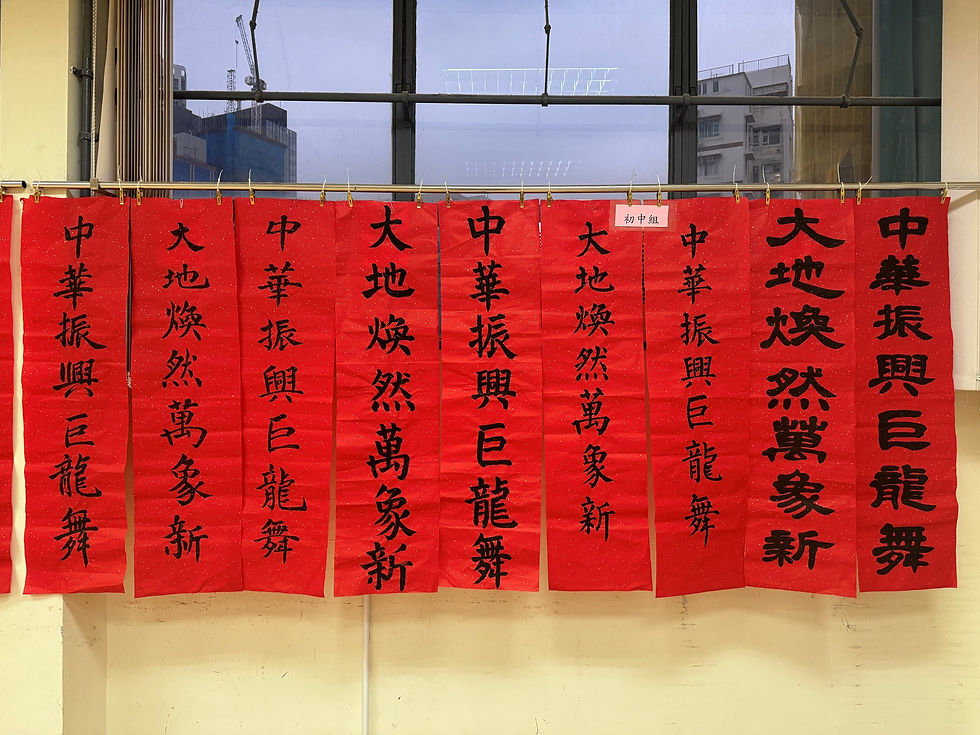 初中組
中華振興巨龍舞
大地煥然萬象新
中華振興巨龍舞
大地煥然萬象新
中華振興巨龍舞
大地煥然萬象新
中華振興巨龍舞
大地煥然萬象新
中華振興巨龍舞